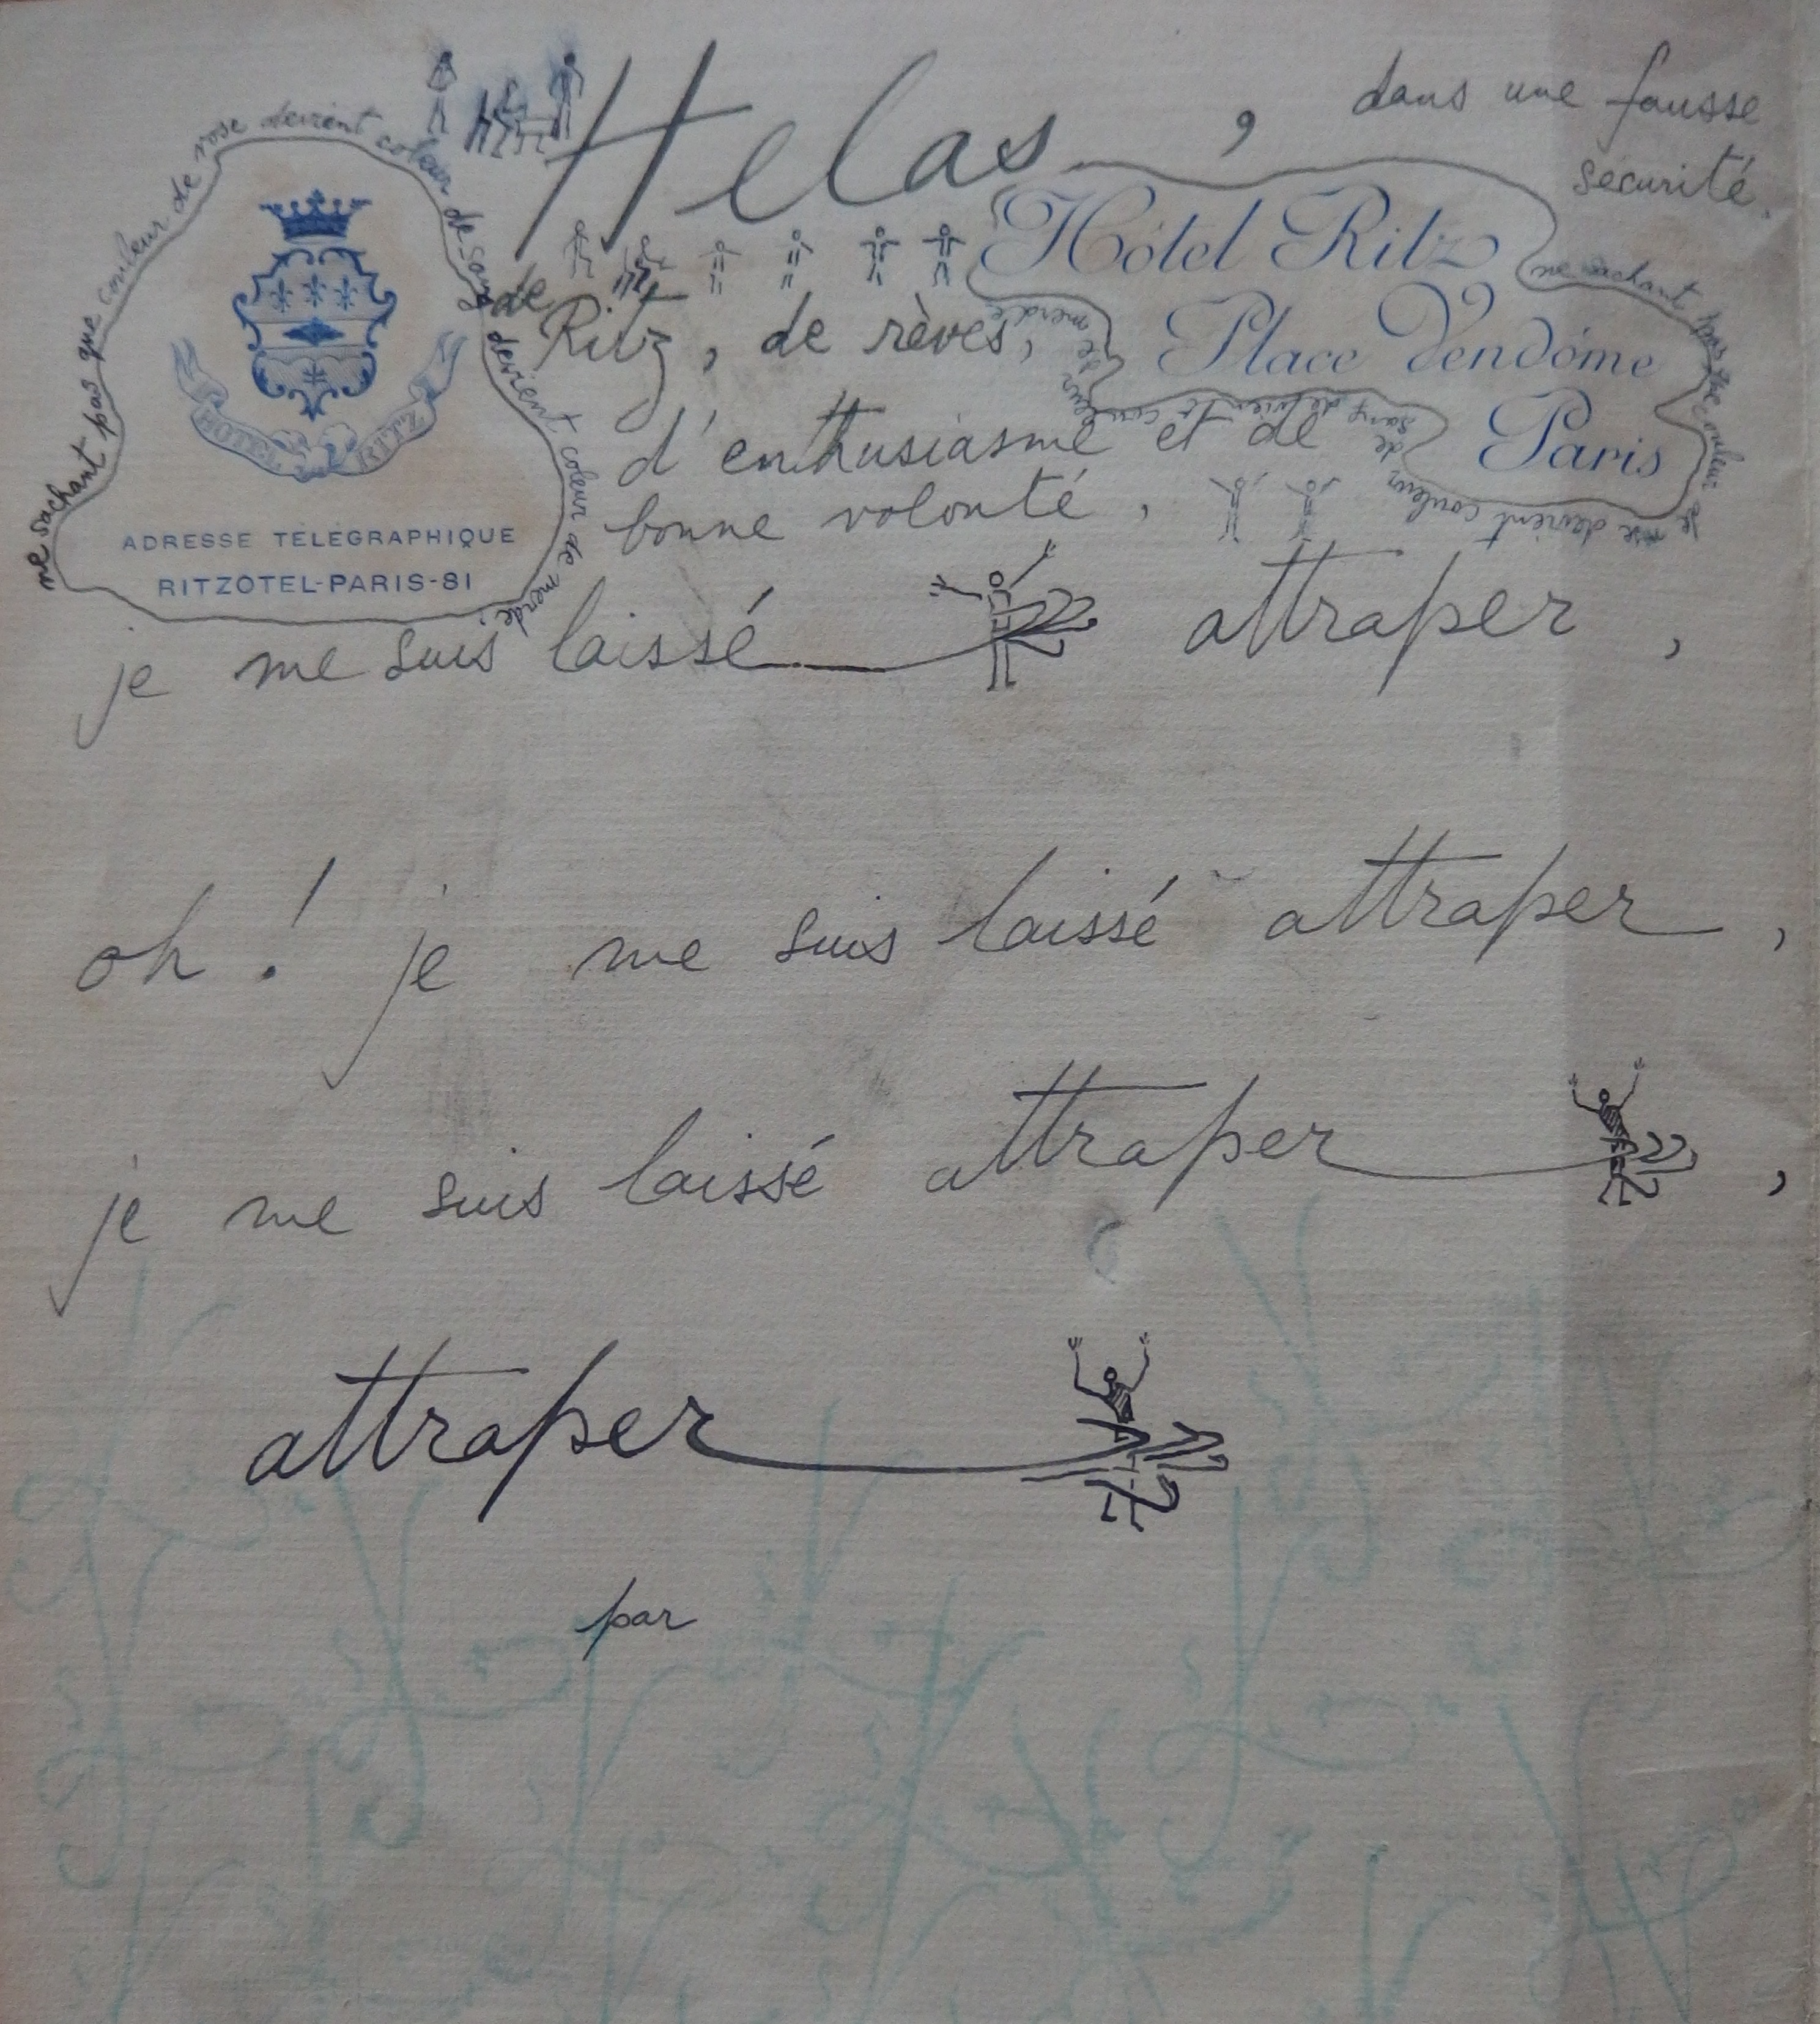 Helas, dans une fausse
sécurité.
ne sachant pas que couleur de rose devient coleur de sang devient coleur de merde.
HOTEL RITZ
ADRESSE TÉLÉGRAPHIQUE
RITZOTEL-PARIS-81
Hôtel Ritz
Place Vendôme
Paris
ne sachant pas que couleur de rose devient couleur de sang devient couleur de merde
de Ritz, de rèves,
d'enthusiasme et de
bonne volonté,
je me suis laissé attraper,
oh! je me suis laissé attraper,
je me suis laissé attraper,
attraper
par